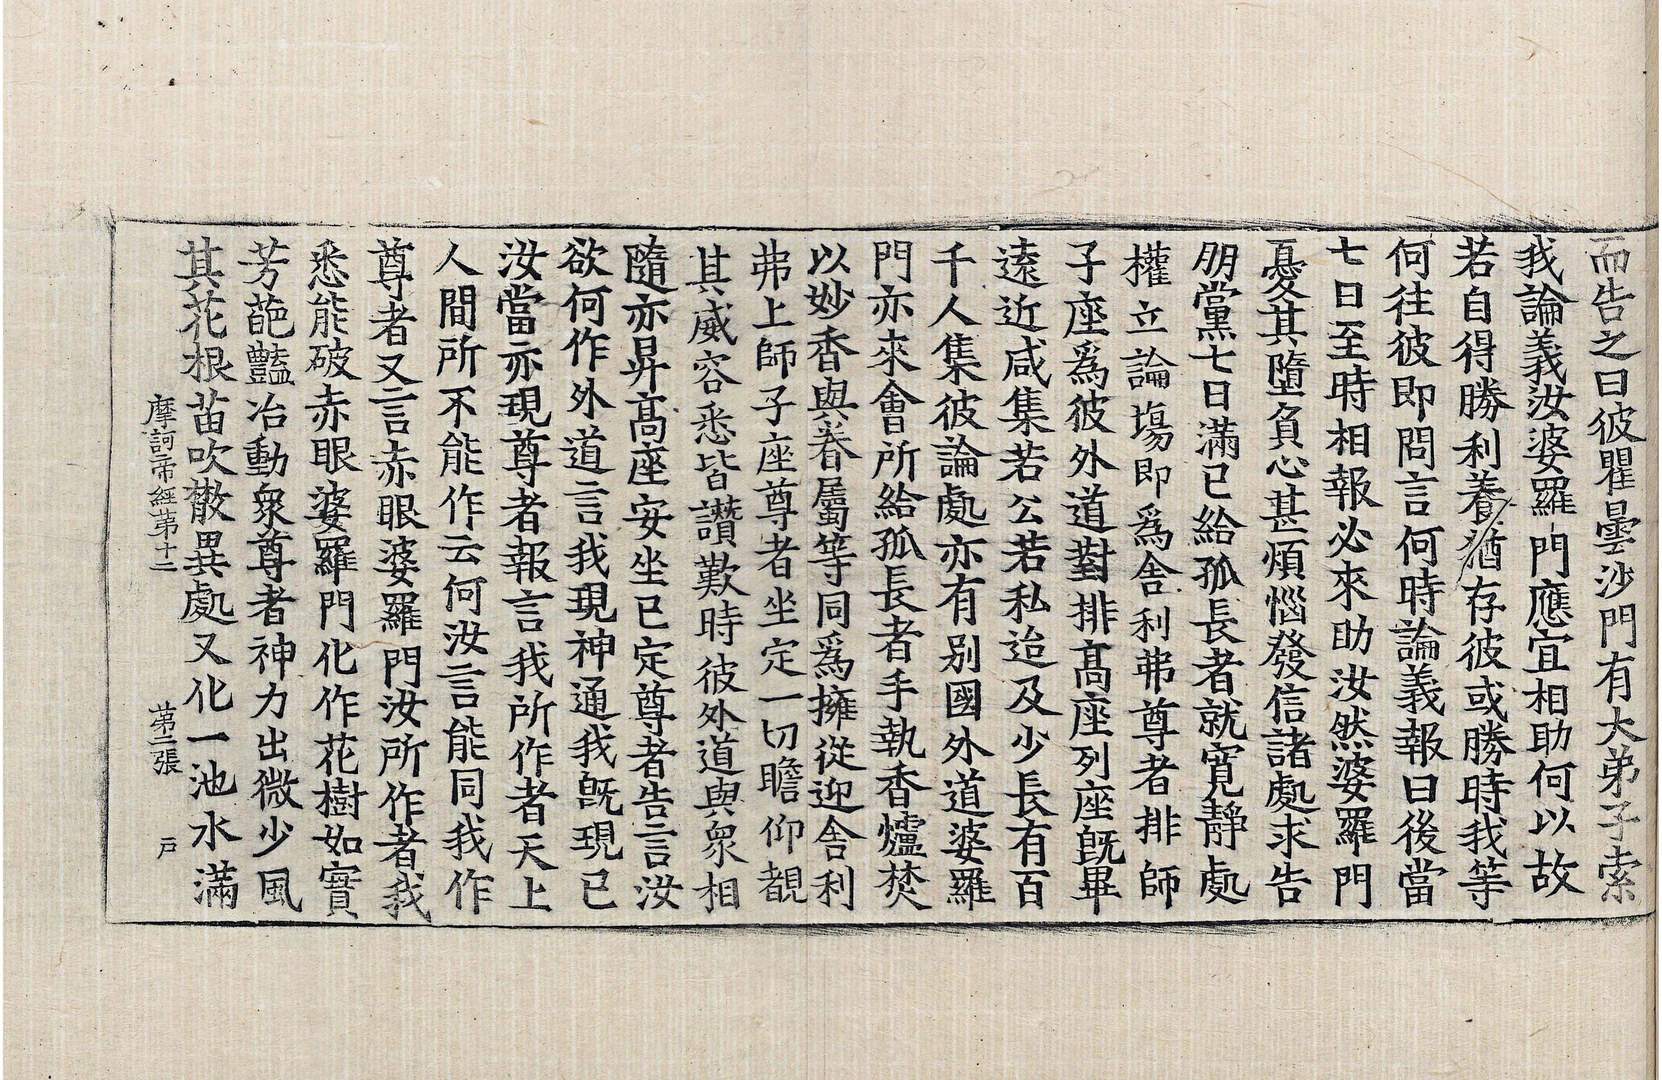 而告之曰彼瞿曇沙門有大弟子索
我論義汝婆羅門應宜相助何以故
若自得勝利養猶存彼或勝時我等
何往彼即問言何時論義報曰後當
七日至時相報必來助汝然婆羅門
憂其墮負心甚煩惱發信諸處求告
朋黨七日滿已給孤長者就寬靜處
權立論場即爲舍利弗尊者排師
子座爲彼外道對排髙座列座旣畢
遠近咸集若公若私迨及少長有百
千人集彼論處亦有別國外道婆羅
門亦來會所給孤長者手執香爐焚
以妙香與眷屬等同爲擁從迎舍利
弗上師子座尊者坐定一切瞻仰覩
其威容悉皆讚歎時彼外道與衆相
隨亦昇髙座安坐已定尊者告言汝
欲何作外道言我現神通我旣現已
汝當亦現尊者報言我所作者天上
人間所不能作云何汝言能同我作
尊者又言赤眼婆羅門汝所作者我
悉能破赤眼婆羅門化作花樹如實
芳葩豔冶動衆尊者神力出微少風
其花根苗吹擻異處又化一池水滿
摩訶帝經第十二　第二張　戸